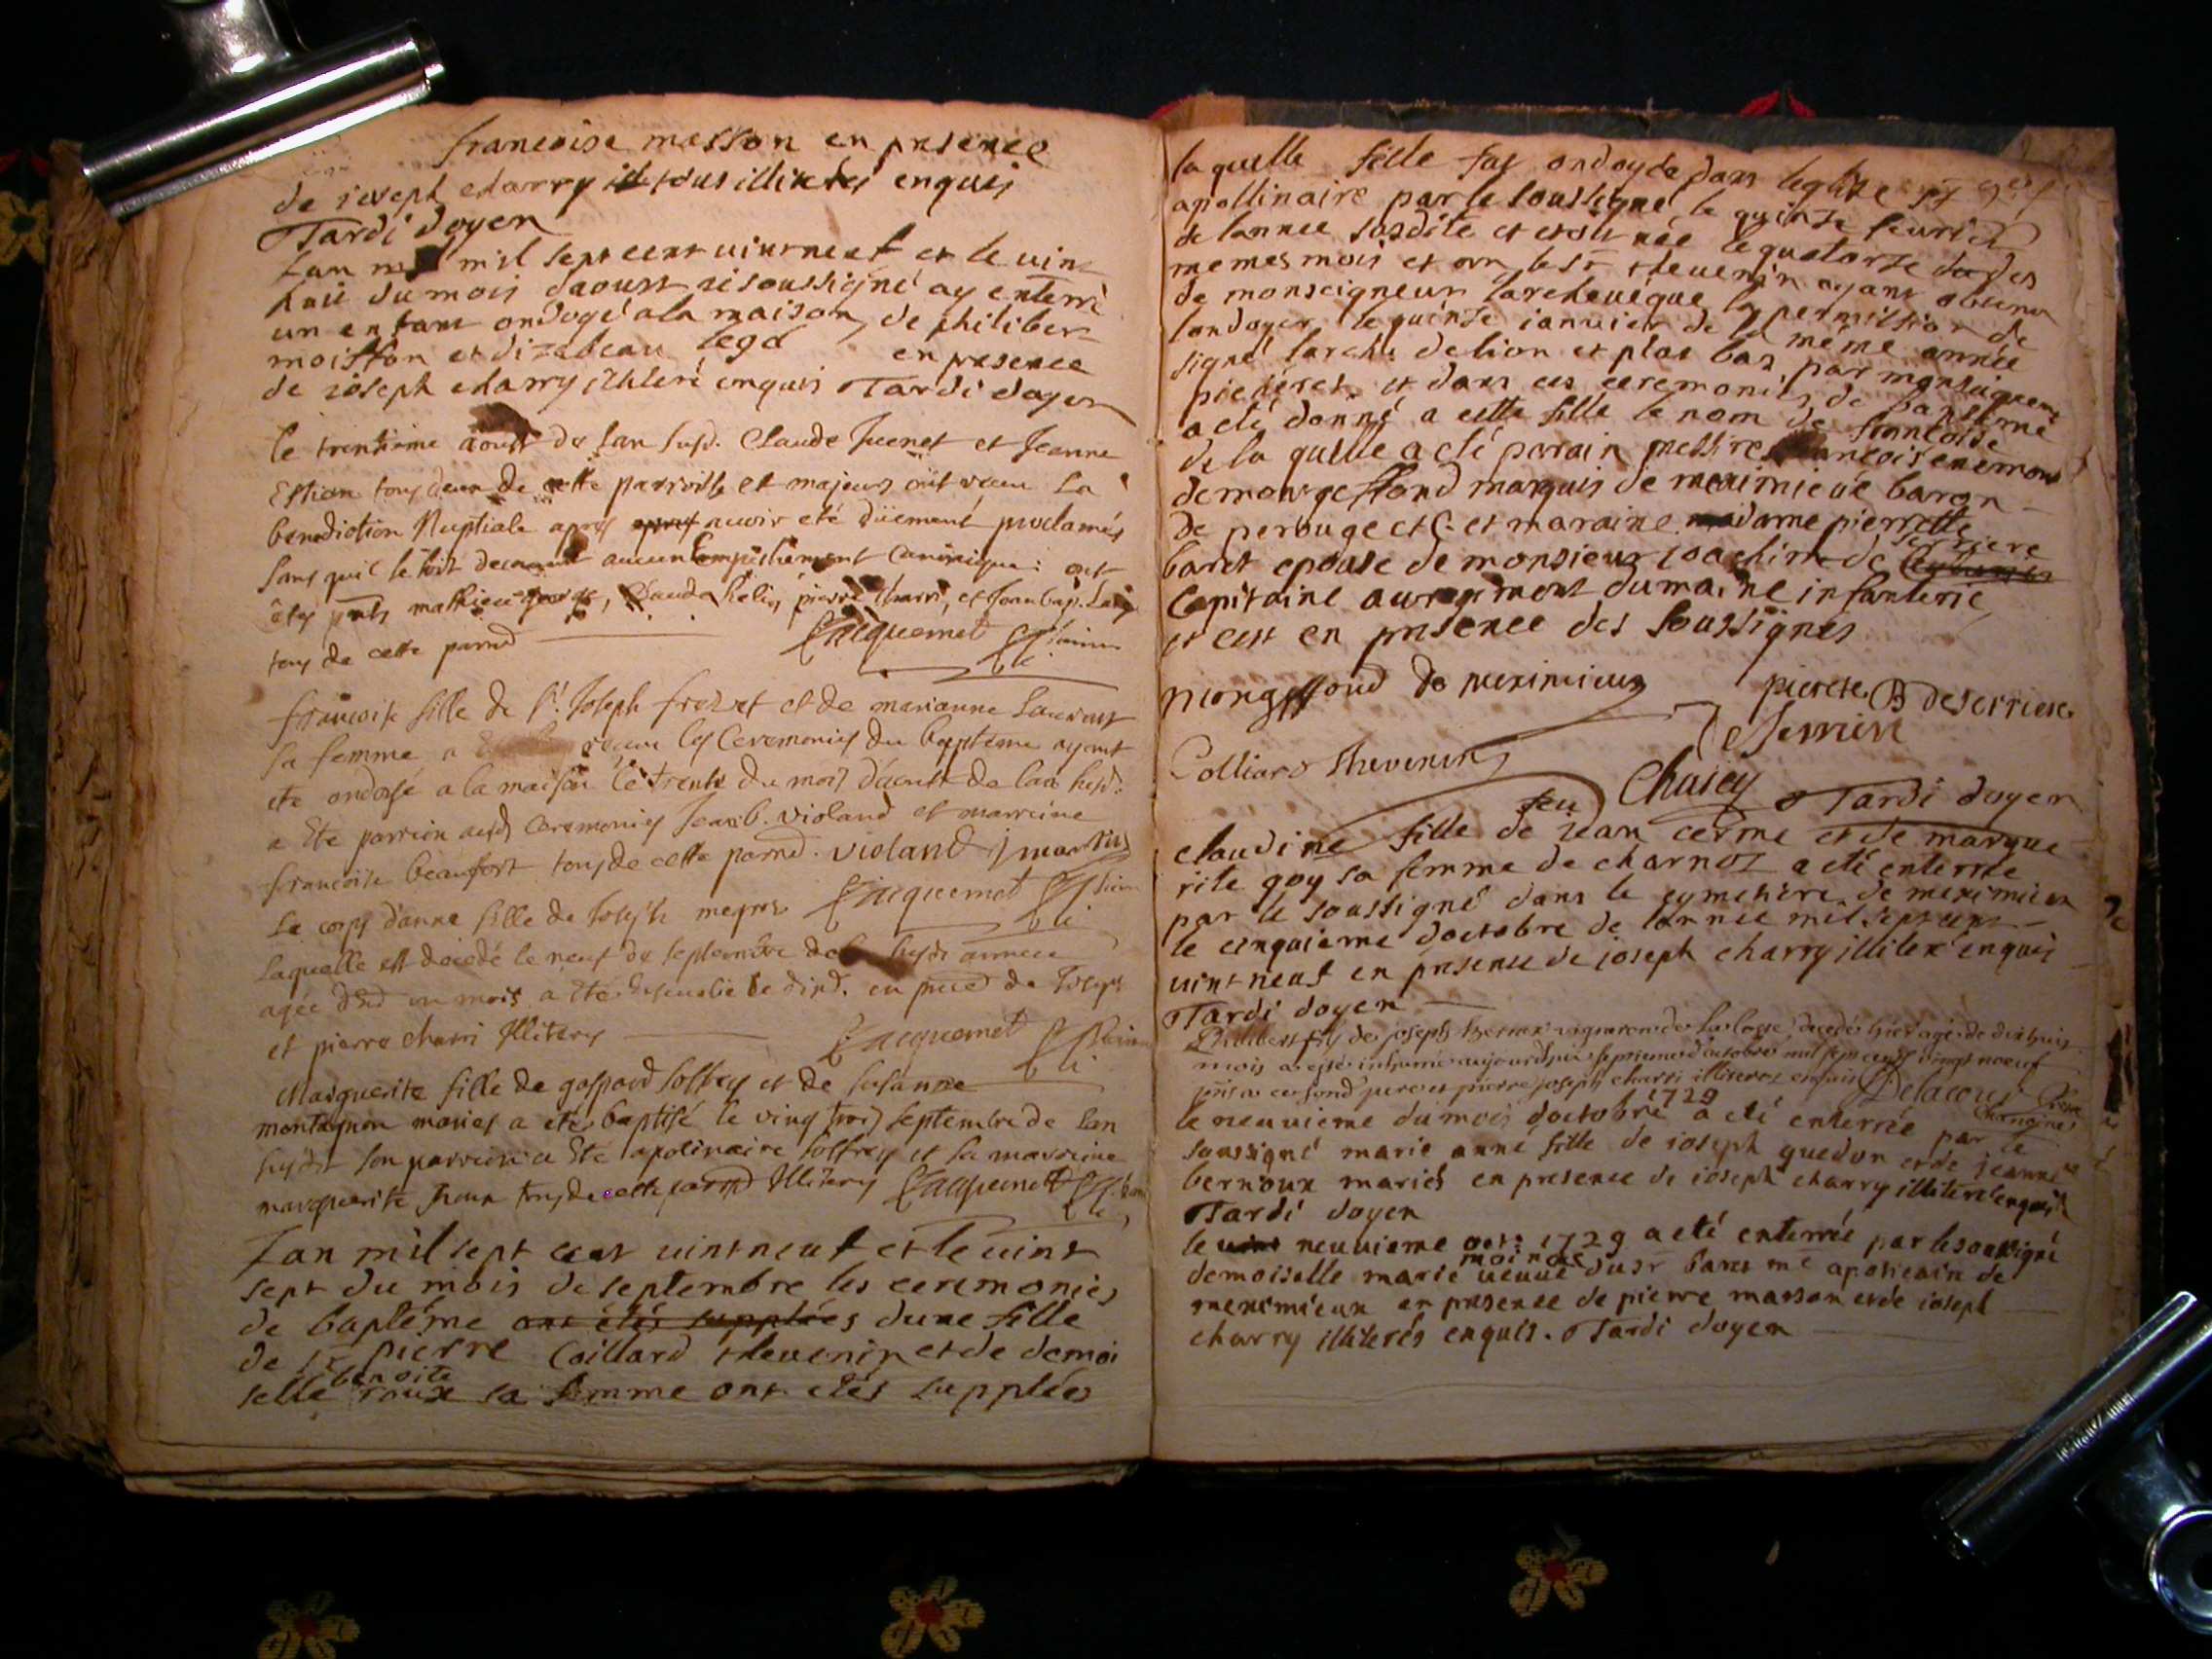 francoise masson en presence
de ioseph charry tous illiteres enquis
Tardi doyen
Lan mil sept cent uint neuf et le uint
huit du mois daoust ie soussigné ay enterré
un enfant ondoyé a la maison, de philiber
moisson et dizabeau lega en presence
de ioseph charry illiteré enquis Tardi doyen
le trentieme aoust de lan susd. Claude Juenet et Jeanne
Estion tous deux de cette parroisse et majeurs ont receu la
benediction Nuptiale apres avoir eté düement proclamés
sans quil se soit decouvert aucun empechement Canonique: ont
étés pnts mathieu george, Claude, pierre charri, et Jean bap.
tous de cette parred Jacquemet
francoise fille de sr. Joseph frozet et de marianne Laurent
sa femme a receu les Ceremonies du baptême ayant
ete ondoyé a la maison le trente du mois d'aoust de lan susd.
a Ete parrein ausd Ceremonies Jean b. violand et marreine
francoise beaufort tous de cette parred. violand j martin
Le corps d'anne fille de Joseph megros Jacquemet
laquelle est decedé le neuf de septembre de susd année
agée d'un mois a Eté en pnce de Joseph
et pierre charri Illiteres Jacquemet
Marguerite fille de gaspard soffrey et de susanne
montagnon mariés a eté baptisé le vingt trois septembre de lan
susdt son parrein a Ete apolinaire soffrey et sa marreine
marguerite tous de cette parred Illiteres Jacquemet
Lan mil sept cent uint neuf et le uint
sept du mois de septembre les ceremonies
de baptéme ont étés supplées dune fille
de sr pierre Coillard thevenin et de demoi
benoite
selle roux sa femme ont étés supplées
la quelle fille fut ondoyée dans leglise st
apollinaire par le soussigné le quinze feurier
de lannee susdite et etoit née le quatorze des
memes mois et an le sr theuenin ayant obtenu
de monseigneur larcheuéque la permission de
londoyer le quinze ianuier de la méme année
signé larche de lion et plus bas, par monseigneur
et dans ces ceremonies de baptéme
a eté donné a cette fille le nom de francoise
de la quelle a eté parain messire francois enemond
de mongeffond marquis de meximieux baron
de perouge etc. et maraine madame pierrette
serriere
baret epouse de monsieur ioachim de
Capitaine au regiment du maine infanterie
et cest en presence des soussignés
mongeffond de meximieux pierete B deserriere
Colliard thevenin
Tardi doyen
feu
claudine fille de iean cerme et de margue
rite goy sa femme de charnoz a eté enterrée
par le soussigné dans le cymetiere de meximieux
le cinquieme doctobre de lannee mil sept cent
uint neuf en presence de ioseph charry illiteré enquis
Tardi doyen
Philibert fils de joseph vigneron de decedé hier agé de dixhuit
mois a esté inhumé aujourdhui septieme d'octobre mil sept cent vingt noeuf
pere et pierre joseph charri illiteres enquis Delacour
1729
le neuuieme du mois doctobre a eté enterrée par le
soussigné marie anne fille de ioseph quedon et de jeanne
bernoux mariés en presence de ioseph charry illiteré enquis
Tardi doyen
le uint neuuieme oct: 1729 a eté enterrée par le soussigné
moinat
demoiselle marie ueuue du sr baret me apoticaire de
meximieux en presence de pierre masson et de ioseph
charry illiterés enquis. Tardi doyen